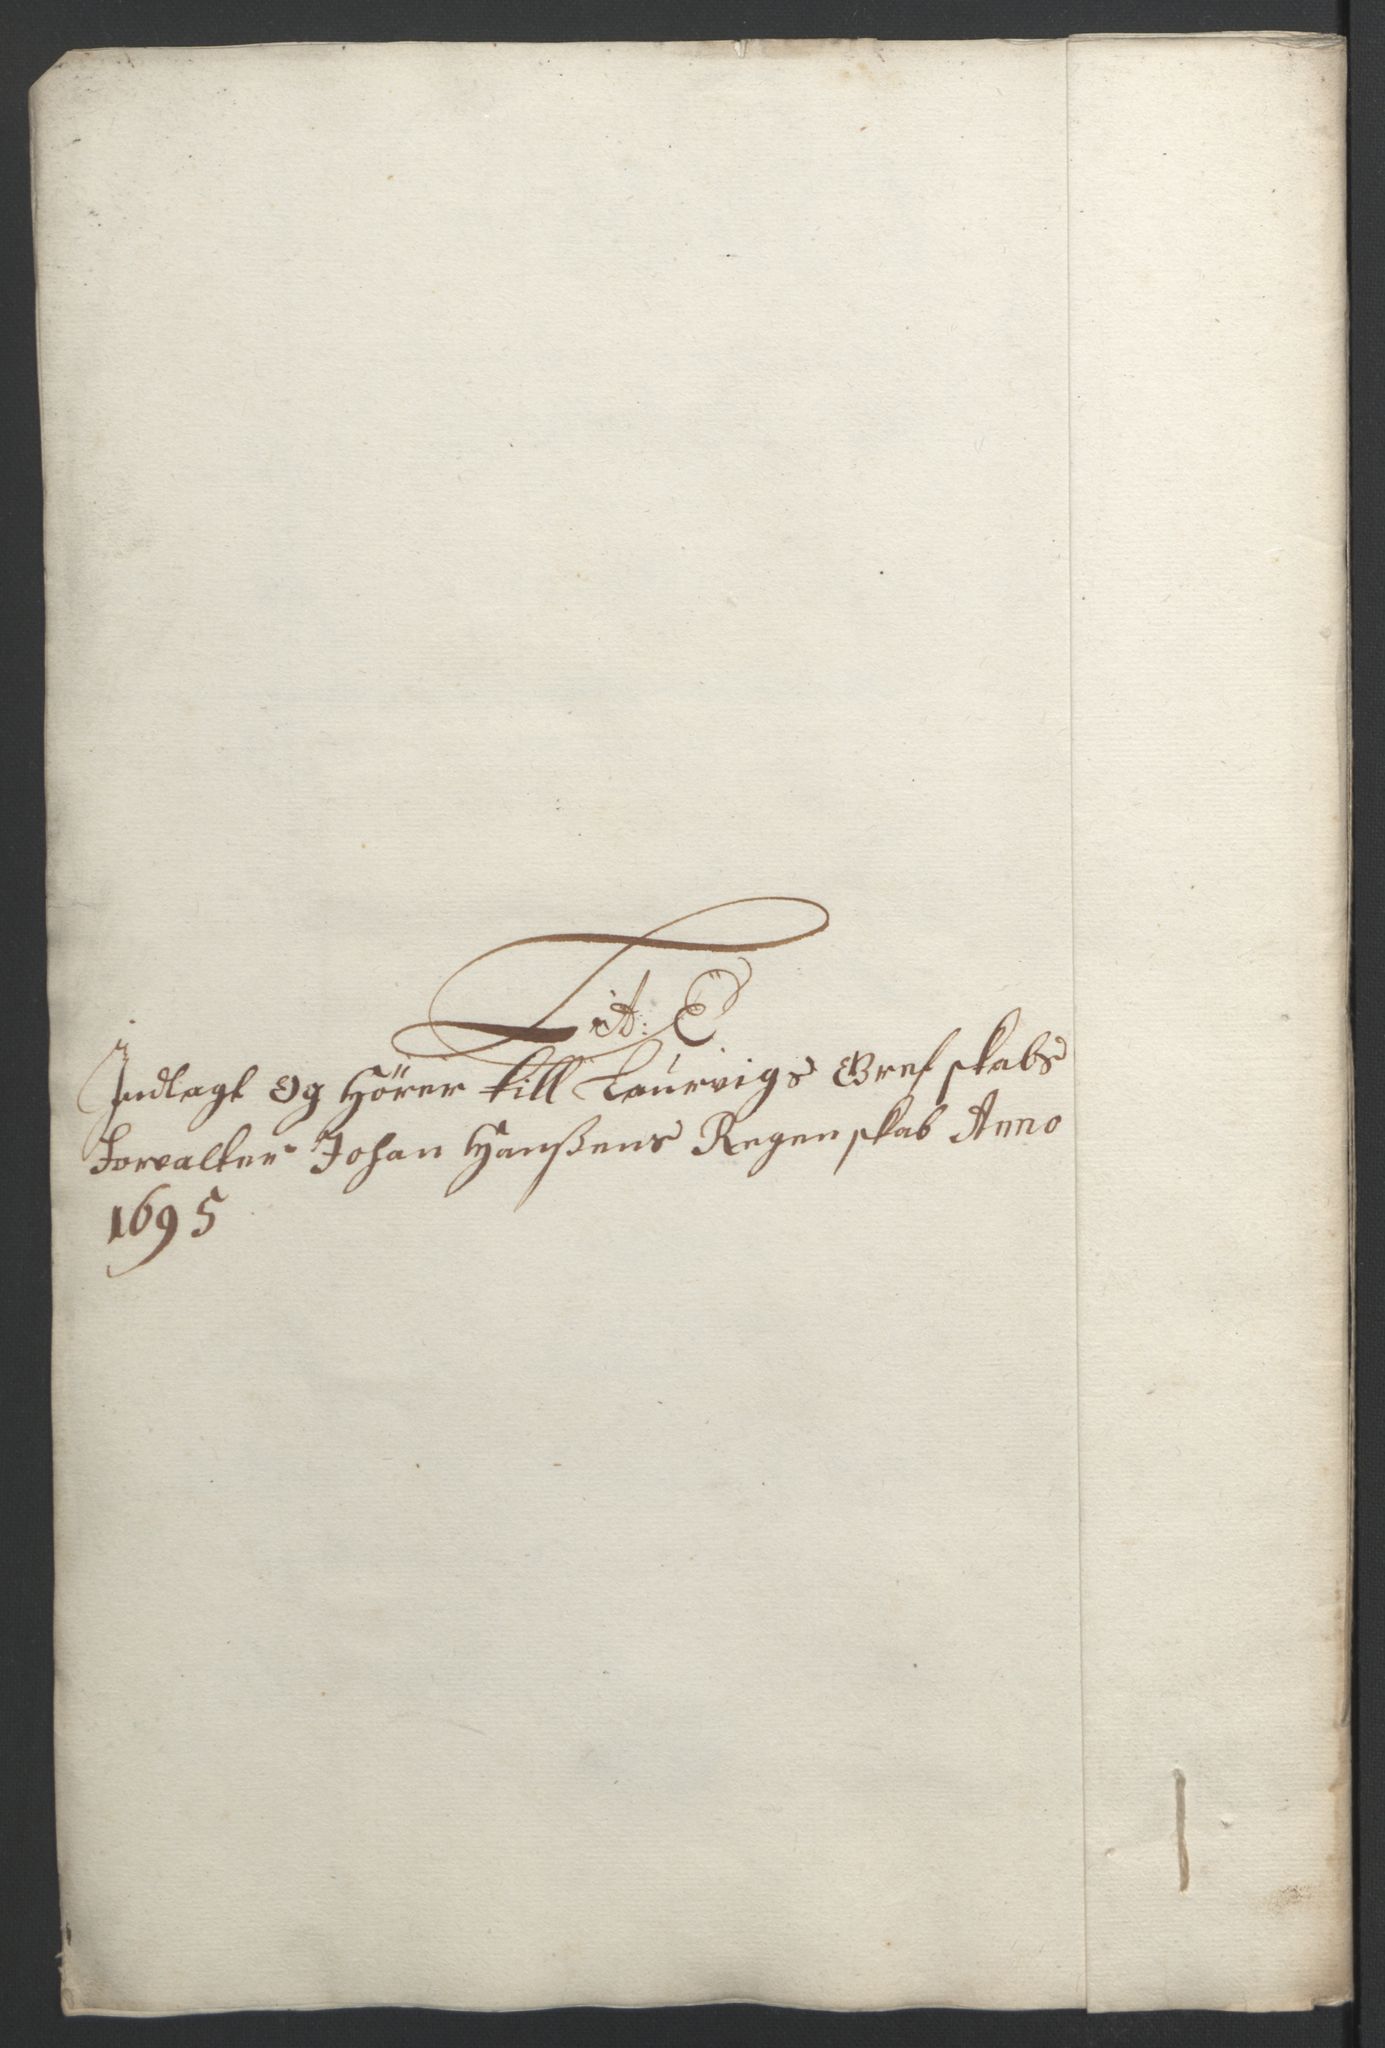 Lit: E
Indlagt og Hörer till Laurvigs Gref skabs
Forvalter Johan Hanßens Regenskab Anno
1695